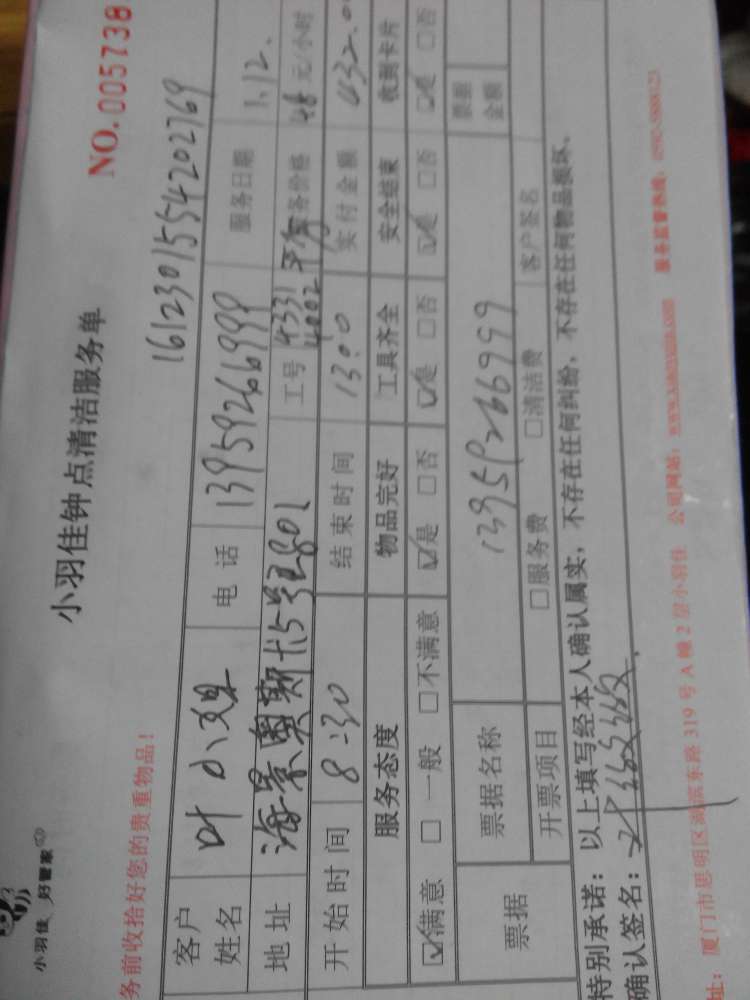 小羽佳 好管家
小羽佳钟点清洁服务单
NO.005738
务前收拾好您的贵重物品!
1612301554202769
客户姓名 叶小姐 电话 13959266999 服务日期 1.12.
地址 海景奥斯卡5号801 工号 4331 4002 服务价格 48元/小时
开始时间 8:30 结束时间 13:00 实付金额 432.0
服务态度 物品完好 工具齐全 安全结束 收到卡片
☑满意 □一般 □不满意 ☑是 □否 ☑是 □否 ☑是 □否 ☑是 □否
票据 票据名称 13959266999 票据金额
开票项目 □服务费 □清洁费 客户签名
特别承诺:以上填写经本人确认属实,不存在任何纠纷,不存在任何物品损坏。
确认签名:
址:厦门市思明区湖滨东路319号A幢2层小羽佳 公司网站: 服务监督热线: